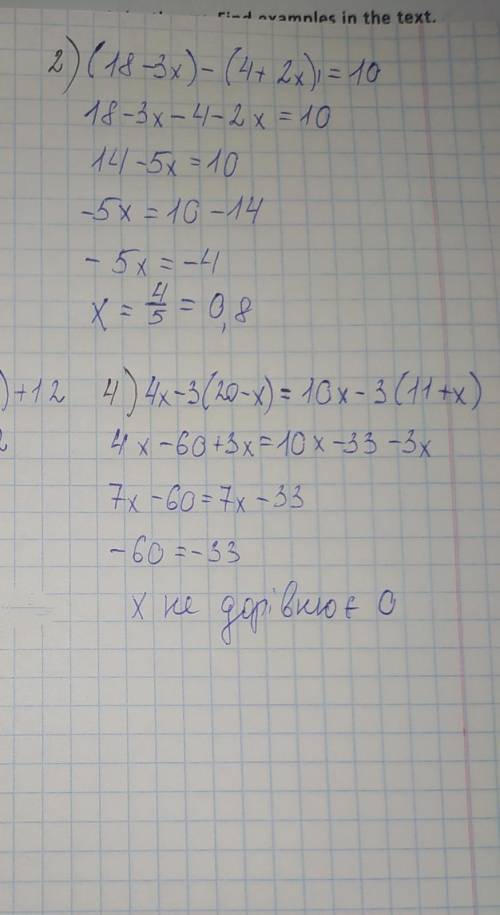 Find examples in the text.
2) (18-3x)-(4+2x) = 10
18-3x-4-2x=10
14-5x=10
-5x=10-14
-5x=-4
x = 4/5 = 0,8
)+12 4) 4x-3(20-x)=10x-3(11+x)
2 4x-60+3x=10x-33-3x
7x-60=7x-33
-60=-33
x не дорівнює 0